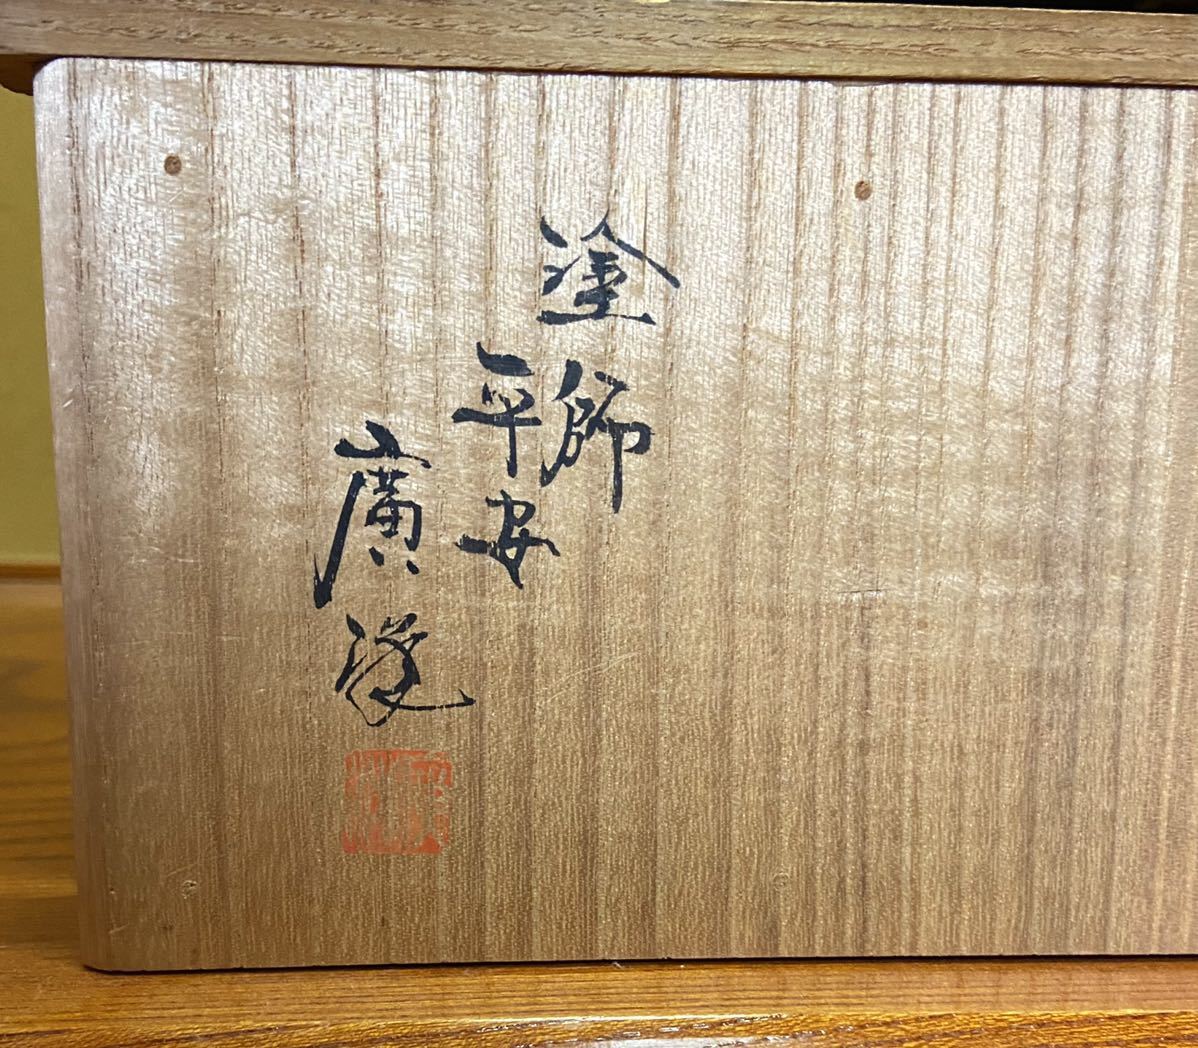 塗師
平安
廣渓